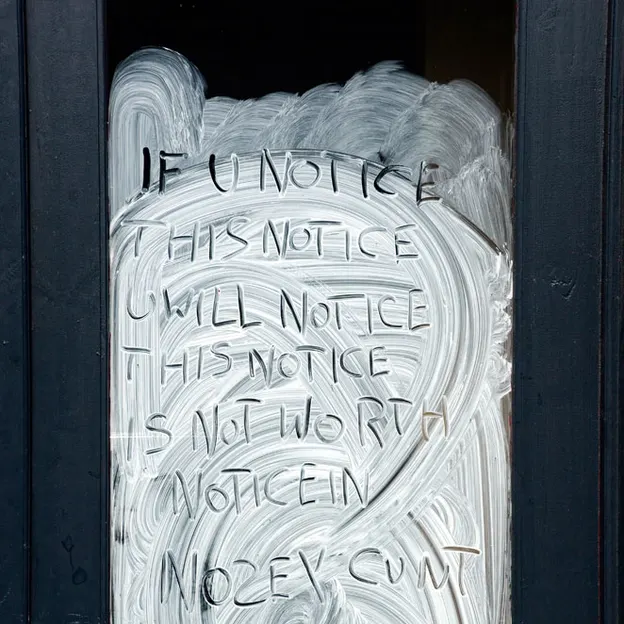 IF U NOTICE
THIS NOTICE
U WILL NOTICE
THIS NOTICE
IS NOT WORTH
NOTICEIN
NOZEY CUNT